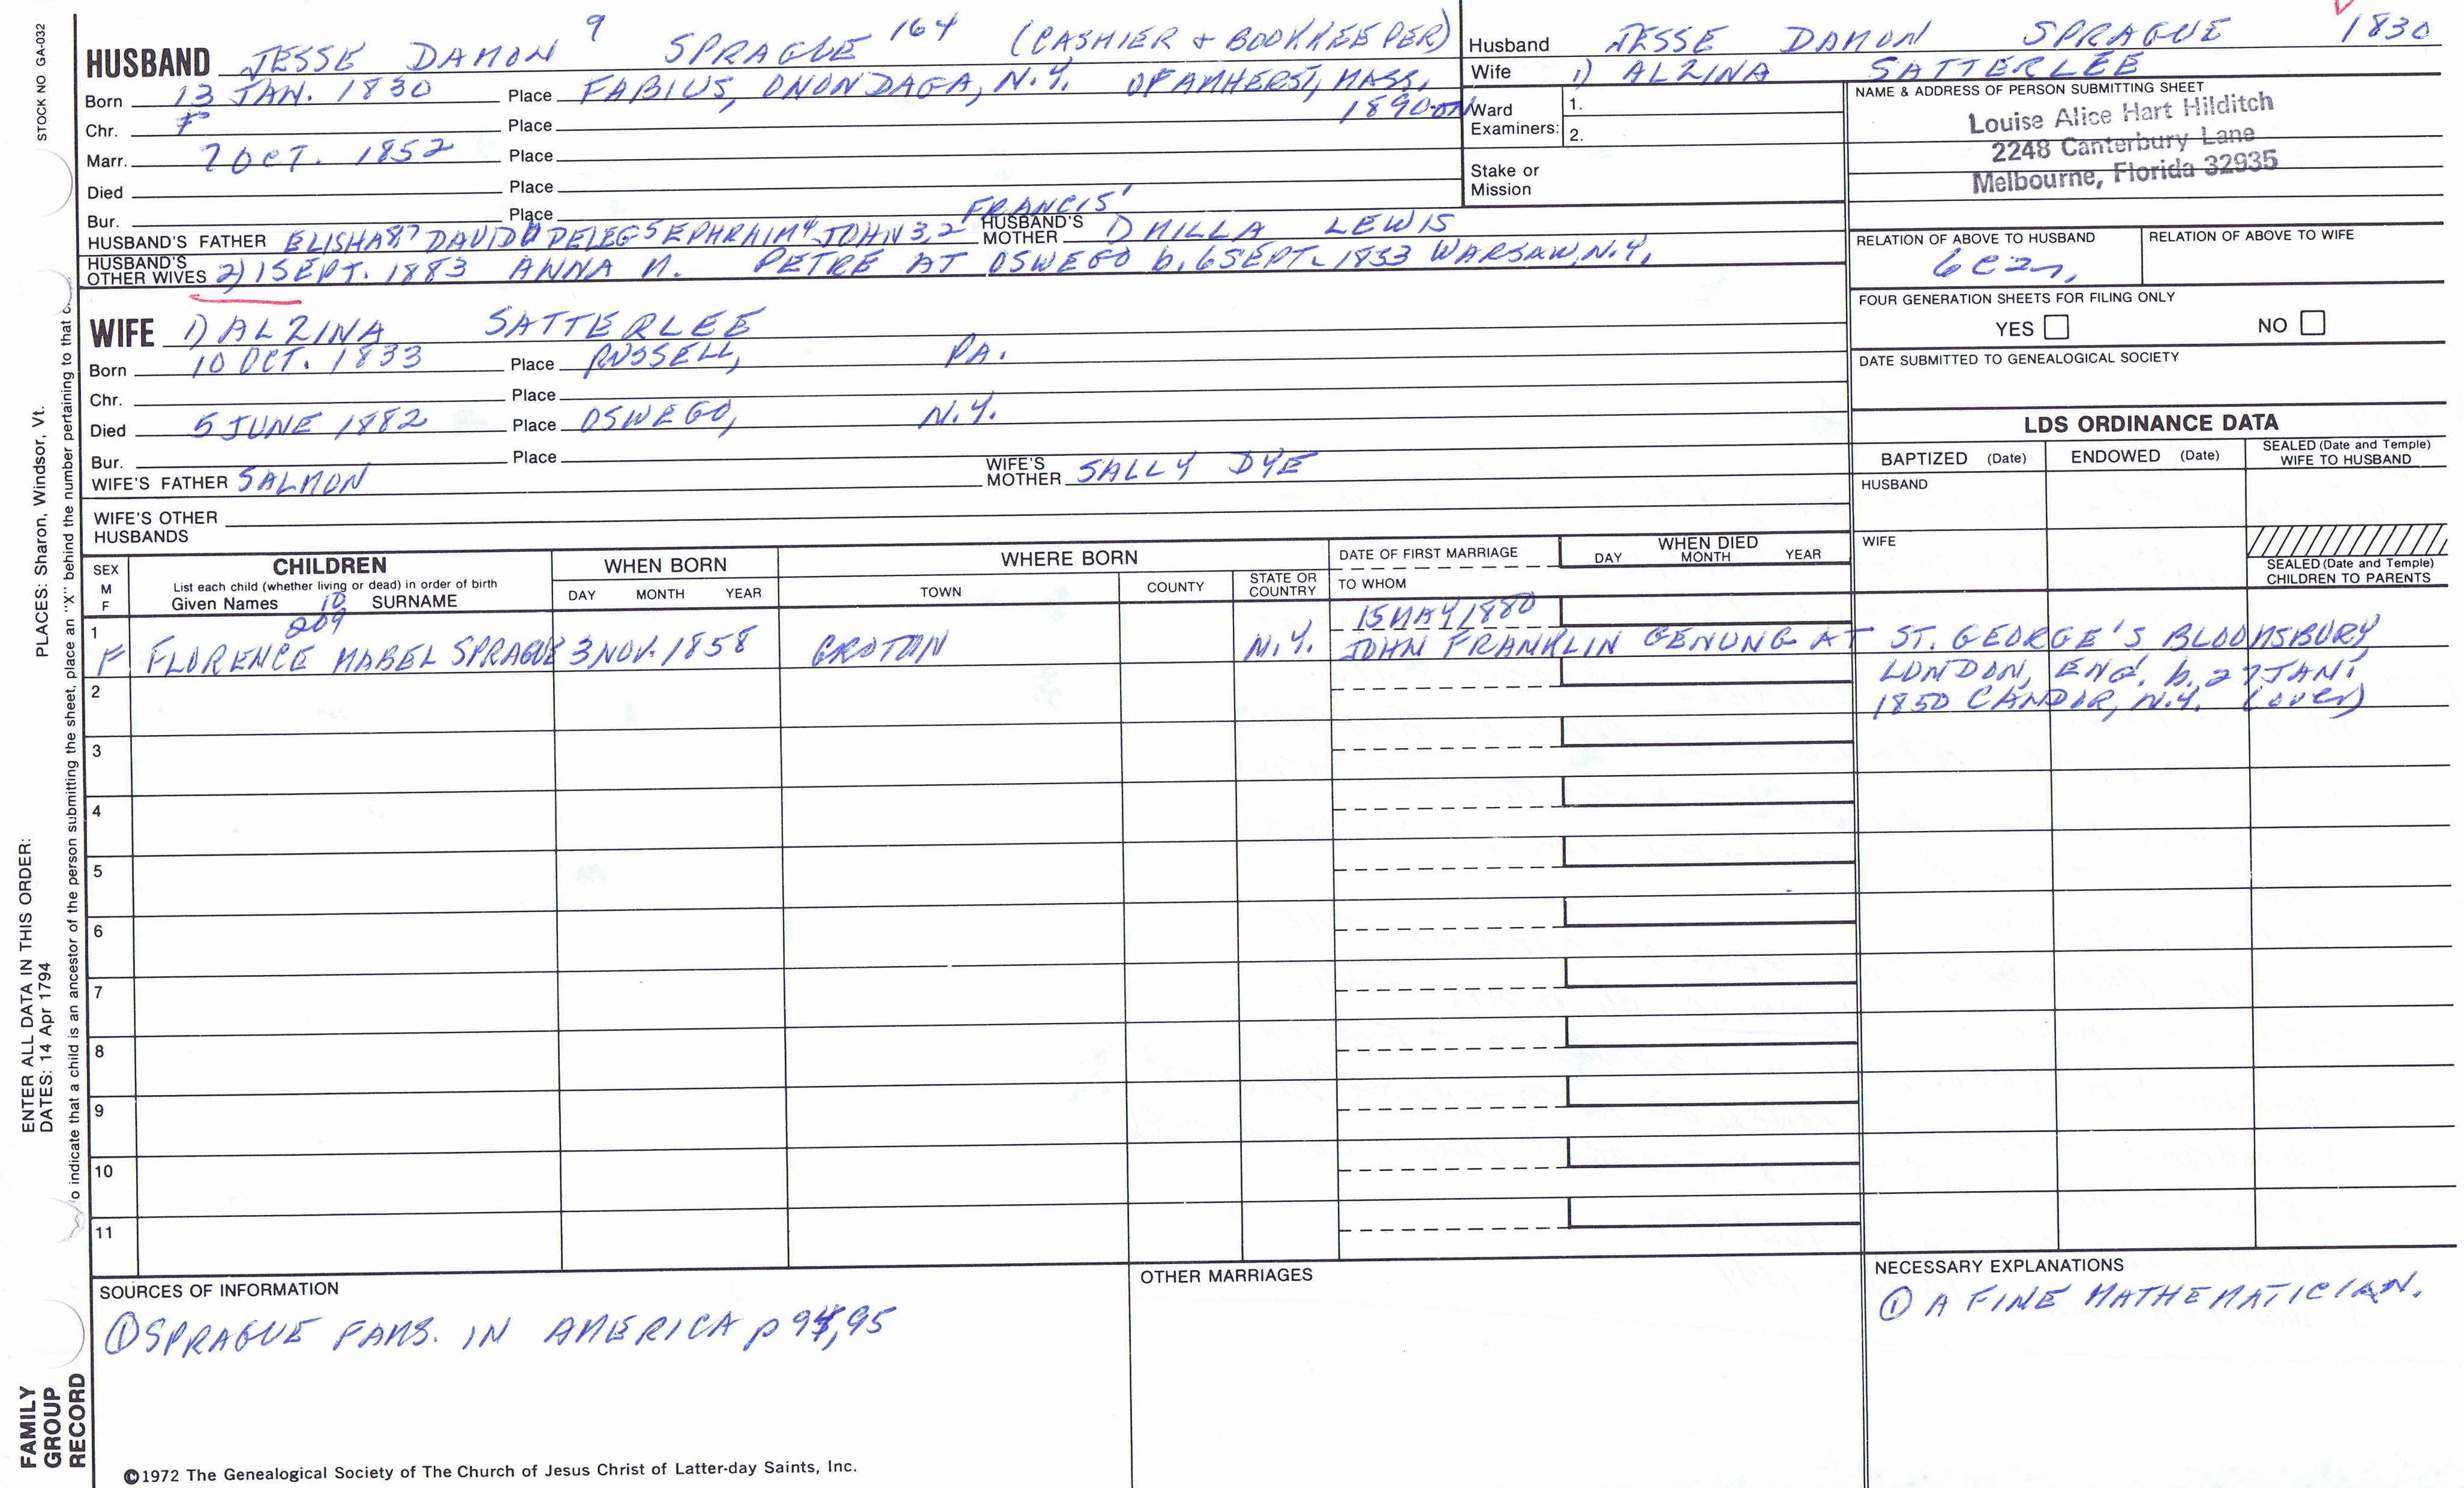 STOCK NO GA-032
PLACES: Sharon, Windsor, Vt.
ENTER ALL DATA IN THIS ORDER:
DATES: 14 Apr 1794
o indicate that a child is an ancestor of the person submitting the sheet, place an "X" behind the number pertaining to that c
FAMILY GROUP RECORD
HUSBAND JESSE DAMON 9 SPRAGUE 164 (CASHIER + BOOKKEEPER)
Born 13 JAN. 1830 Place FABIUS, ONONDAGA, N.Y. OF AMHERST, MASS.
1890-on
Chr. Place
Marr. 7 OCT. 1852 Place
Died Place
Bur. Place
HUSBAND'S FATHER ELISHA 8 7 DAVID 6 PELEG 5 EPHRAIM 4 JOHN 3,2 FRANCIS 1 HUSBAND'S MOTHER DMILLA LEWIS
HUSBAND'S OTHER WIVES 2) 1 SEPT. 1883 ANNA M. PETRE AT OSWEGO b. 6 SEPT. 1833 WARSAW, N.Y.
WIFE 1) ALZINA SATTERLEE
Born 10 OCT. 1833 Place RUSSELL, PA.
Chr. Place
Died 5 JUNE 1882 Place OSWEGO, N.Y.
Bur. Place
WIFE'S FATHER SALMON WIFE'S MOTHER SALLY DYE
WIFE'S OTHER HUSBANDS
Husband JESSE DAMON SPRAGUE 1830
Wife 1) ALZINA SATTERLEE
Ward Examiners: 1.
2.
Stake or Mission
NAME & ADDRESS OF PERSON SUBMITTING SHEET
Louise Alice Hart Hilditch
2248 Canterbury Lane
Melbourne, Florida 32935
RELATION OF ABOVE TO HUSBAND RELATION OF ABOVE TO WIFE
FOUR GENERATION SHEETS FOR FILING ONLY
YES NO
DATE SUBMITTED TO GENEALOGICAL SOCIETY
LDS ORDINANCE DATA
BAPTIZED (Date) ENDOWED (Date) SEALED (Date and Temple) WIFE TO HUSBAND
HUSBAND
WIFE
SEALED (Date and Temple) CHILDREN TO PARENTS
SEX M F
CHILDREN
List each child (whether living or dead) in order of birth
Given Names 10 SURNAME
WHEN BORN
DAY MONTH YEAR
WHERE BORN
TOWN COUNTY STATE OR COUNTRY
DATE OF FIRST MARRIAGE
TO WHOM
WHEN DIED
DAY MONTH YEAR
1 209 15 MAY 1880
F FLORENCE MABEL SPRAGUE 3 NOV. 1858 GROTON N.Y. JOHN FRANKLIN GENUNG AT ST. GEORGE'S BLOOMSBURY
LONDON, ENG. b. 27 JAN.
1850 CANDOR, N.Y. (over)
2
3
4
5
6
7
8
9
10
11
SOURCES OF INFORMATION
① SPRAGUE FAMS. IN AMERICA p 94,95
OTHER MARRIAGES
NECESSARY EXPLANATIONS
① A FINE MATHEMATICIAN.
©1972 The Genealogical Society of The Church of Jesus Christ of Latter-day Saints, Inc.